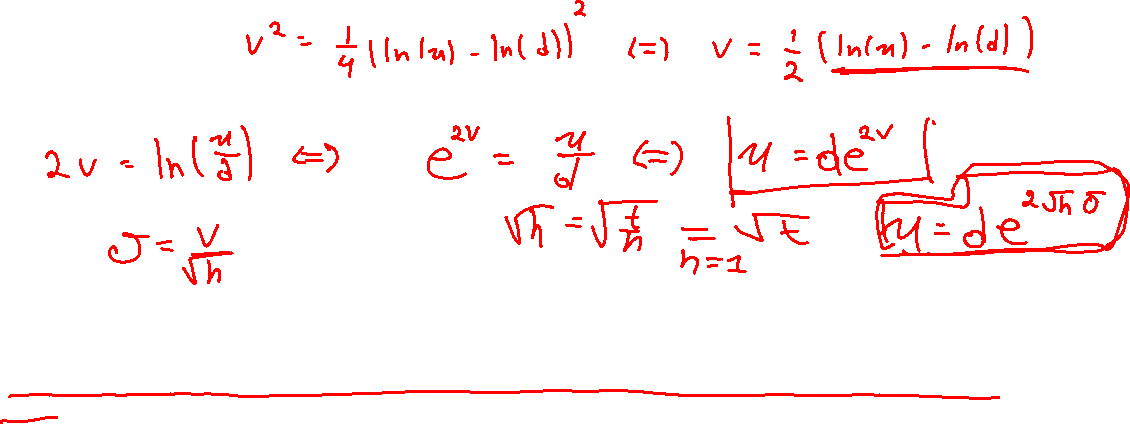 v² = 1/4 (ln(u) - ln(d))² (=) v = 1/2 (ln(u) - ln(d))
2v = ln(u/d) ⇔ e^{2v} = u/d (=) u = de^{2v}
σ = v/√h √h = √(t/n) =_{n=1} √t u = de^{2√h σ}